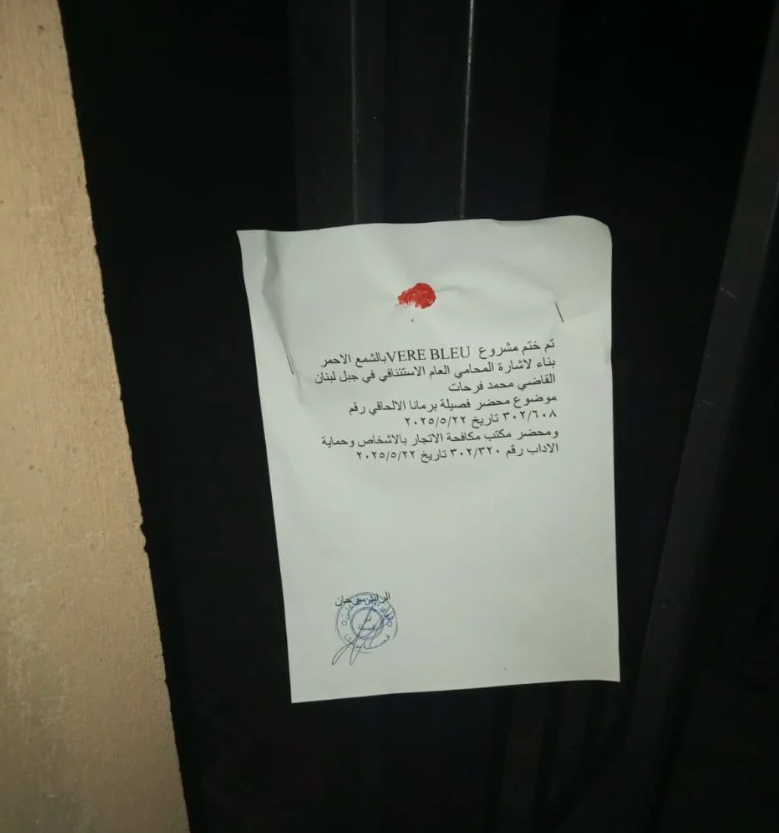 تم ختم مشروع VERE BLEU بالشمع الاحمر
بناء لاشارة المحامي العام الاستئنافي في جبل لبنان
القاضي محمد فرحات
موضوع محضر فصيلة برمانا الالحاقي رقم
٣٠٢/٦٠٨ تاريخ ٢٠٢٥/٥/٢٢
ومحضر مكتب مكافحة الاتجار بالاشخاص وحماية
الاداب رقم ٣٠٢/٣٢٠ تاريخ ٢٠٢٥/٥/٢٢